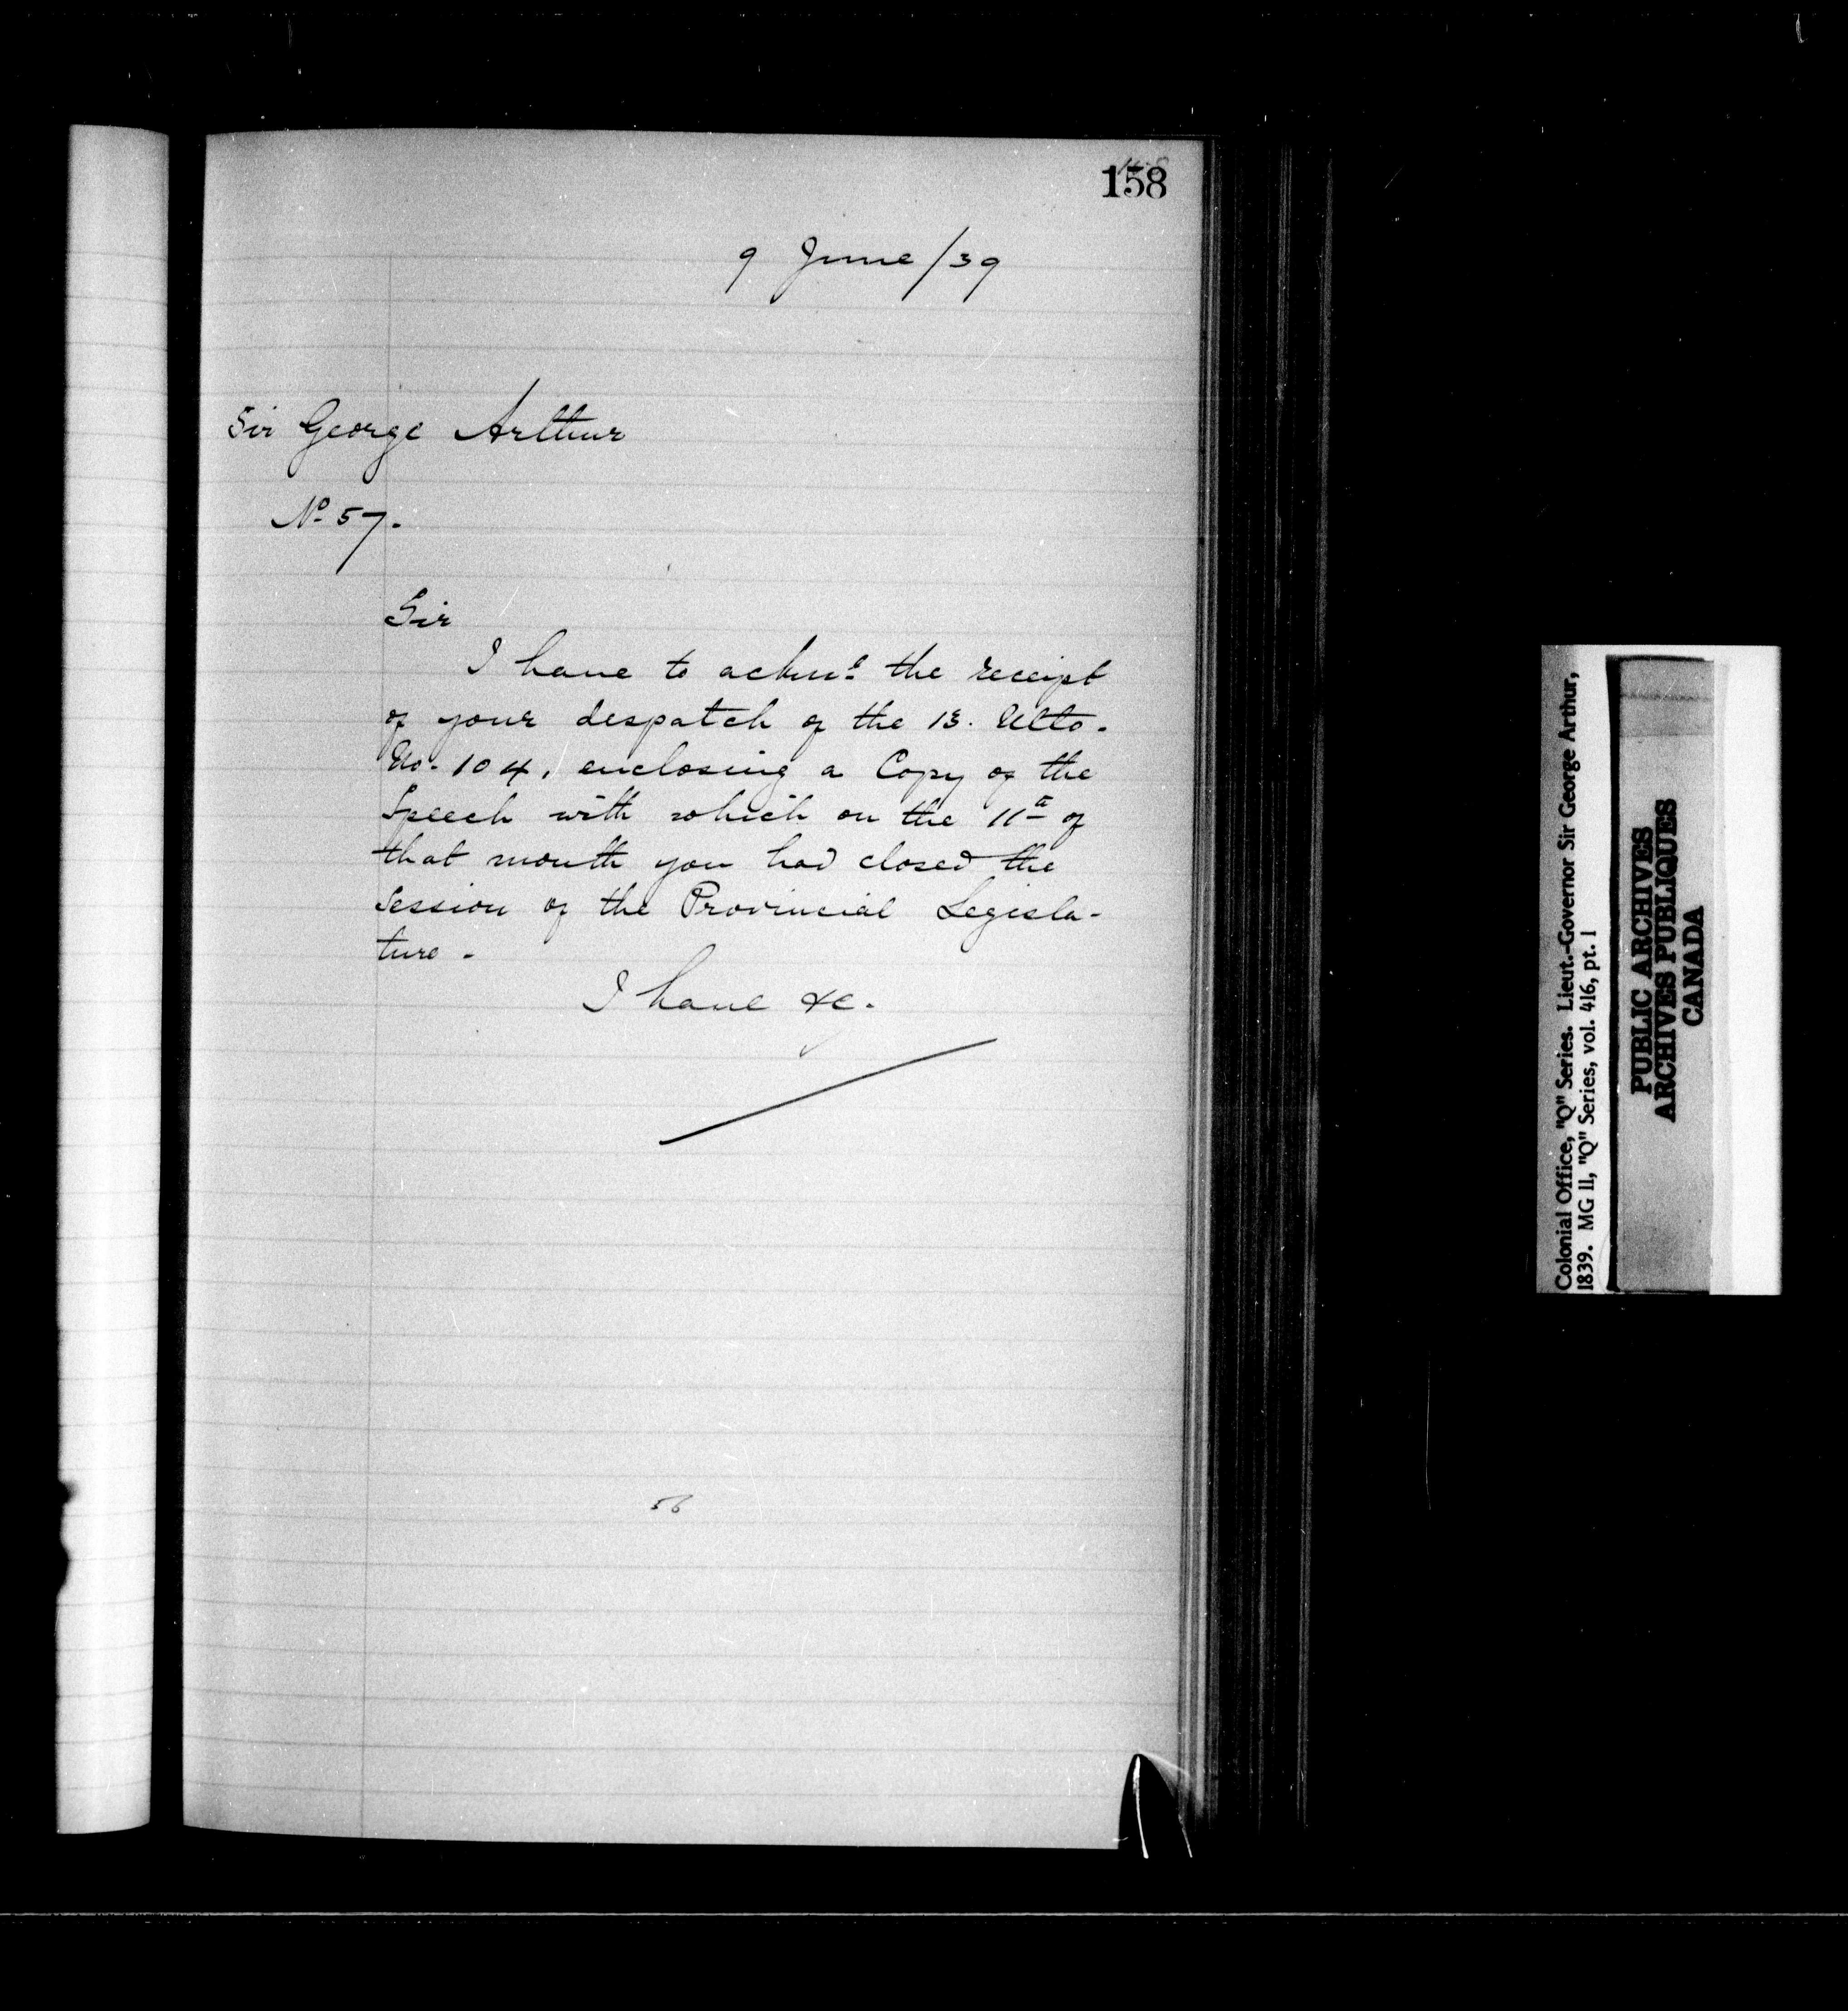 158
9 June /39
Sir George Arthur
No 57.
Sir
I have to ackne the receipt
of your despatch of the 13. Ulto.
No. 104, enclosing a Copy of the
Speech with which on the 11th of
that month you had closed the
Session of the Provincial Legisla-
ture.
I have &c.
56
Colonial Office, "Q" Series. Lieut.-Governor Sir George Arthur,
1839. MG 11, "Q" Series, vol. 416, pt. 1
PUBLIC ARCHIVES
ARCHIVES PUBLIQUES
CANADA